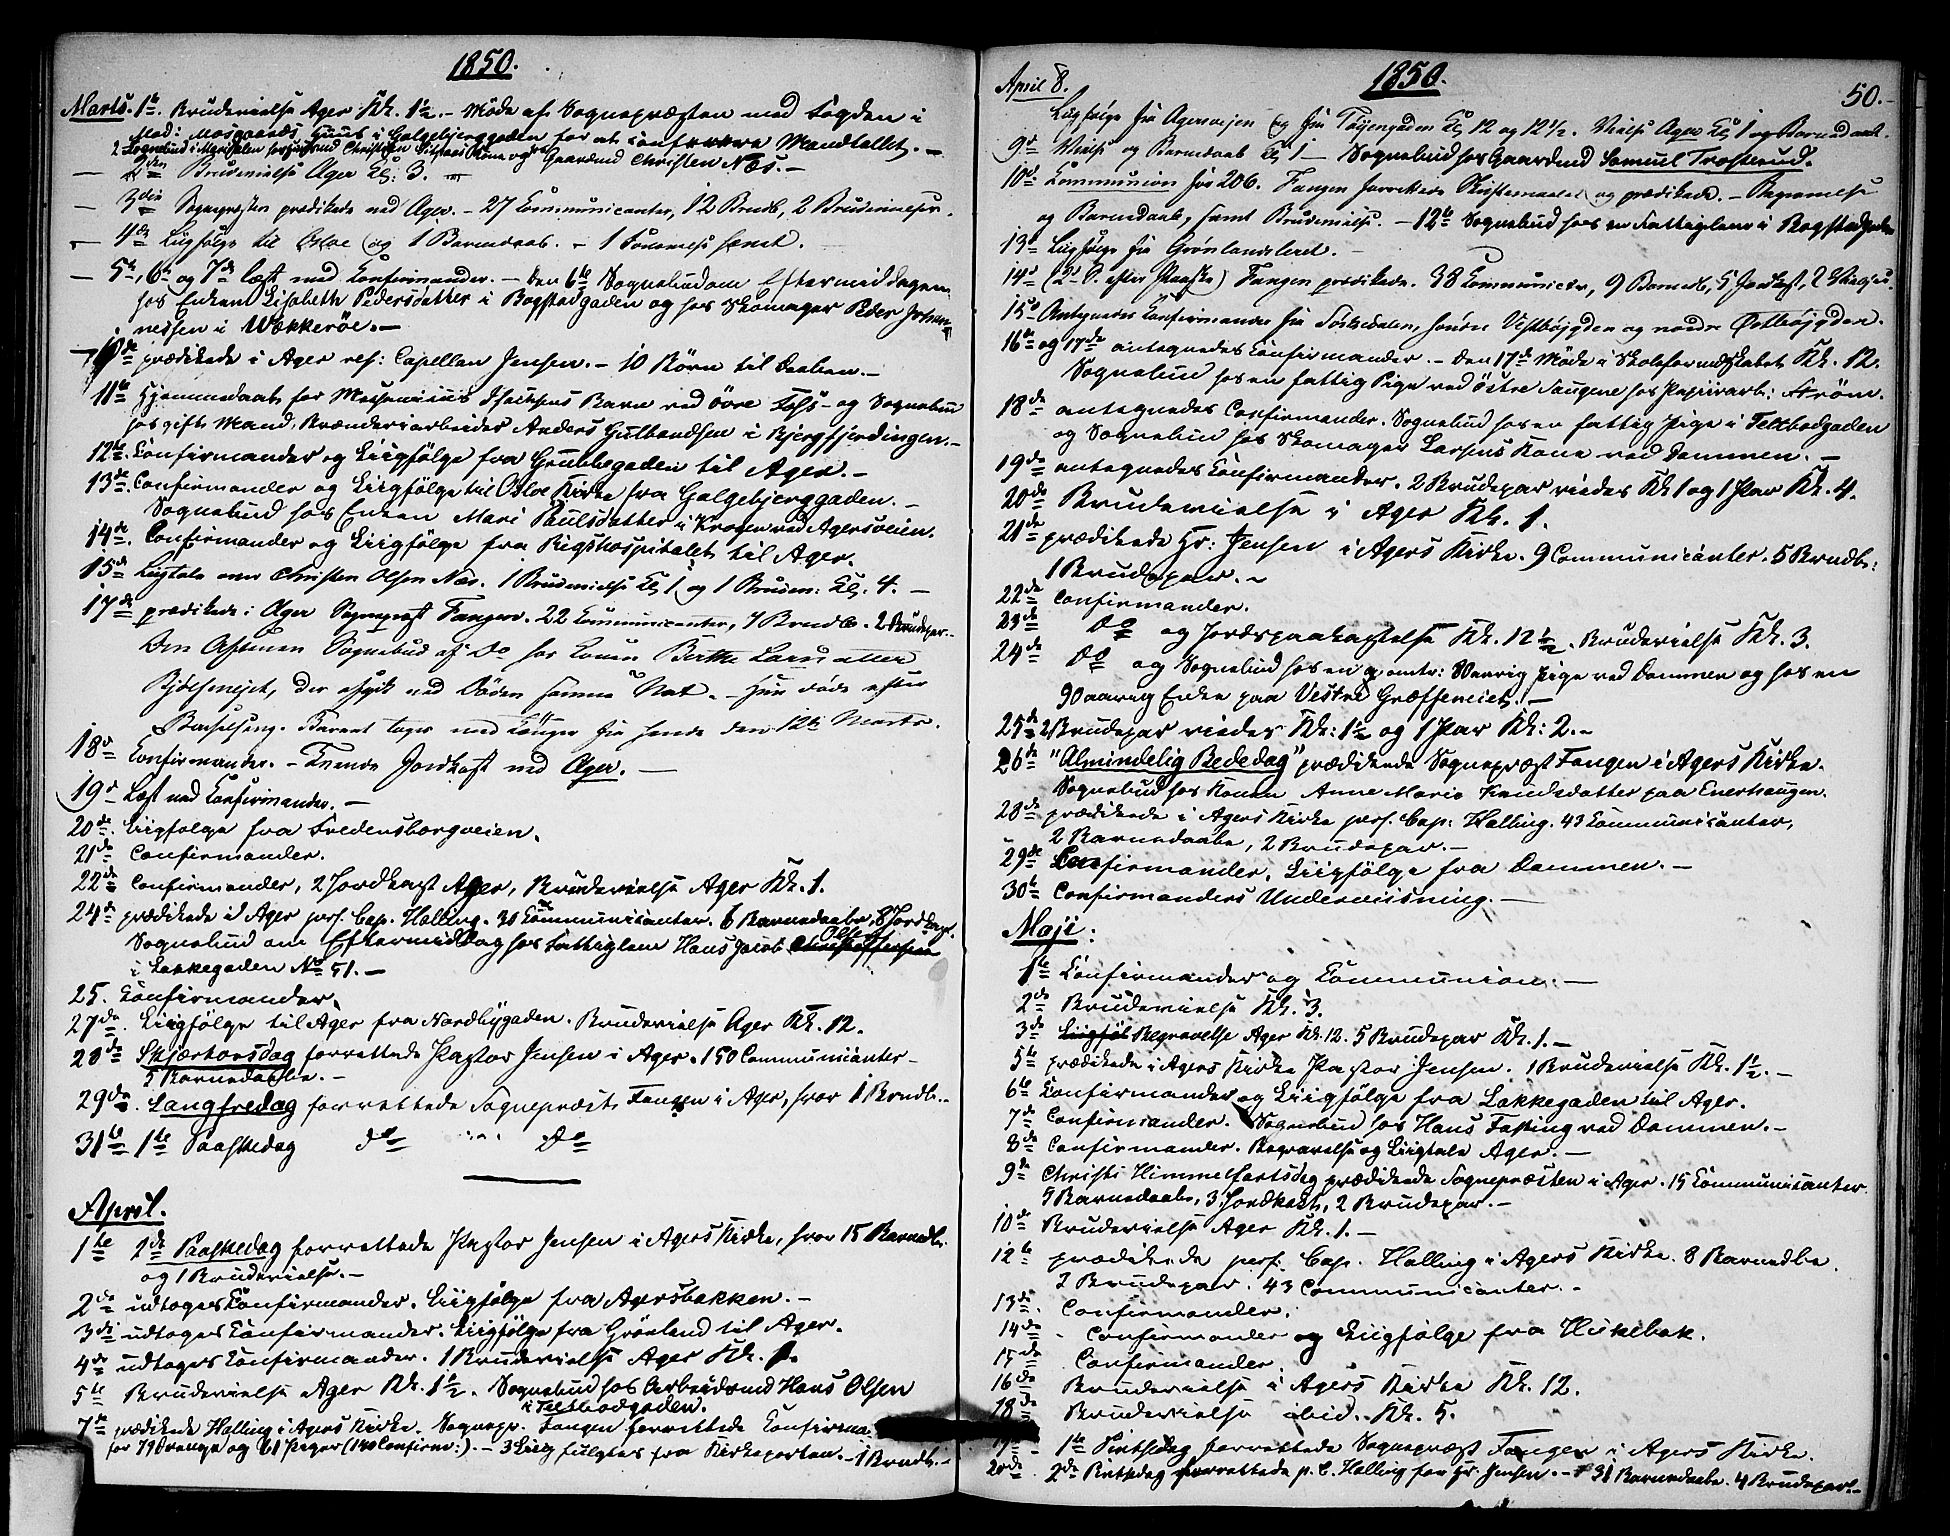 1850.
Marts. 1ste Brudevielse Ager Kl. 1½. – Møde af Sognepræsten med Fogden i
Mad: Mosgaards Huus i Galgebjerggaden for at conferere Mandtallet. –
2 Sognebud i
Kone og Gaardmd Christen Næs. –
– 2den Brudevielse Ager Kl: 3. –
– 3die Sognepræsten prædikede ved Ager. – 27 Communicanter, 12 Brndb, 2 Brudevielser.
– 4de Liigfølge til Osloe og 1 Barnedaab. – 1
– 5te, 6te og 7de læst med Confirmander. – Den 6te Sognebud om Eftermiddagen
hos Enken Lisabeth Pedersdatter i Bogstadgaden og hos Skomager Peder Johan-
nessen i Wækkerøe. –
– 10de prædikede i Ager res: Capellan Jensen. – 10 Børn til Daaben. –
11te Hjemmedaab for Isachsens Barn ved Øvre Foss – og Sognebud
hos gift Mand, Brænderiarbeider Anders Gulbrandsen i Bjergfjerdingen. –
12te Confirmander og Liigfølge fra Grubbegaden til Ager. –
13de Confirmander og Liigfølge til Osloe Kirke fra Galgebjerggaden. –
Sognebud hos Enken Mari Paulsdatter i Krogen ved Agersveien.
14de Confirmander og Liigfølge fra Rigshospitalet til Ager.
15de Liigtale over Christen Olsen Næs. 1 Brudevielse Kl 1 og 1 Brudev: Kl. 4. –
17de prædikede i Ager Sognepræst Fangen. 22 Communicanter, 7 Brndb. 2 Brudepar. –
Den Aftenen Sognebud af Do hos Konen Berthe Larsdatter
Bjølsenejet, der afgik ved Døden samme Nat. – Hun døde efter
Barselseng. den 12te Marts.
18de Confirmander. – Jordkast ved Ager. –
19de Læst med Confirmander. –
20de Liigfølge fra Fredensborgveien.
21de Confirmander.
22de Confirmander, 2 Jordkast Ager, Brudevielse Ager Kl. 1.
24de prædikede i Ager pers. Cap. Halling. 30 Communicanter. 6 Barnedaabe, 8 Jordkast.
Sognebud om Eftermiddag hos Fattiglem Hans Jacob Olsen
i Lakkegaden No 51. –
25. Confirmander.
27de Liigfølge til Ager fra Nordbygaden. Brudevielse Ager Kl. 12.
28de Skjærtorsdag forrettede Pastor Jensen i Ager. 150 Communicanter –
5 Barnedaabe. –
29de. Langfredag forrettede Sognepræst Fangen i Ager, hvor 1 Brndb. –
31te 1ste Paaskedag do Do
April.
1ste 2de Paaskedag forrettede Pastor Jensen i Agers Kirke, hvor 15 Barnedb.
og 1 Brudevielse. –
2de udtoges Confirmander. Liigfølge fra Agersbakken. –
3die udtoges Confirmander. Liigfølge fra Grønland til Ager.
4de udtoges Confirmander. 1 Brudevielse Ager Kl. 1.
5te Brudevielse Ager Kl. 1½. Sognebud hos Arbeidsmd Hans Olsen
i Teltbodgaden.
7de prædikede Halling i Agers Kirke. Sognepr. Fangen forrettede Confirma
for 79 Drenge og 61 Piger (140 Confirm:). – 3 Liig fulgtes fra Kirkeporten. – 1 Brndb. –
April 8. 1850. 50. –
Liigfølge fra Agersveien og fra Tøyengaden Kl 12 og 12½. Vielse Ager Kl 1 og Barnedaab.
9de Vielse og Barnedaab Kl 1 – Sognebud hos Gaardmd Samuel Trosterud.
10de Communion for 206. Fangen forrettede Skriftemaalet og prædikede. – Begravelse
og Barnedaab, samt Brudevielse. – 12te Sognebud hos en Fattiglem i Bogstadgaden
13de Liigfølge fra Grønlandsleret. –
14de (2. S. efter Paaske) Fangen prædikede. 38 Communicanter, 9 Barnedb, 5 Jordkast, 2 Vielser.
15de Antegnedes Confirmander fra Sørkedalen, søndre Vestbøygden og nordre Østbøygden.
16de og 17de antegnedes Confirmander. – Den 17de Møde i Skoleformdskabet Kl. 12.
Sognebud hos en fattig Pige ved Østre Saugene hos Papiirarb: Strøm.
18de antegnedes Confirmander. Sognebud hos en fattig Pige i Teltbodgaden
og Sognebud hos Skomager Larsens Kone ved Dammen. –
19de antegnedes Confirmander. 2 Brudepar viedes Kl 1 og 1 Par Kl. 4.
20de Brudevielse i Ager Kl. 1.
21de prædikede Hr: Jensen i Agers Kirke. 9 Communicanter. 5 Brndb:
1 Brudepar. –
22de Confirmander.
23de Do og Jordspaakastelse Kl. 12½. Brudevielse Kl. 3.
24de Do og Sognebud hos en Pige ved Dammen og hos en
90aarig Enke paa Vestre Græffeneiet. –
25de 2 Brudepar viedes Kl: 1½ og 1 Par Kl: 2. –
26de "Almindelig Bededag" prædikede Sognepræst Fangen i Agers Kirke.
Sognebud hos Konen Anne Marie Knudsdatter paa Enerhaugen.
28de prædikede i Agers Kirke pers. Cap: Halling. 43 Communicanter,
2 Barnedaabe, 2 Brudepar. –
29de Confirmander. Liigfølge fra Dammen. –
30te Confirmanders Underviisning. –
Maji:
1ste Confirmander og Communion. –
2de Brudevielse Kl. 3.
3de Liigføl Begravelse Ager Kl. 12. 5 Brudepar Kl. 1. –
5te prædikede i Agers Kirke Pastor Jensen. 1 Brudevielse Kl. 1½. –
6te Confirmander og Liigfølge fra Lakkegaden til Ager.
7de Confirmander. Sognebud hos Hans Fasting ved Dammen. –
8de Confirmander. Begravelse og Liigtale Ager. –
9de Christi Himmelfartsdag prædikede Sognepræsten i Ager. 15 Communicanter
5 Barnedaabe, 3 Jordkast, 2 Brudepar. –
10de Brudevielse Ager Kl. 1. –
12te prædikede pers. Cap. Halling i Agers Kirke. 8 Barnedbe.
2 Brudepar. 43 Communicanter. –
13de. Confirmander.
14de – Confirmander og Liigfølge fra Hukebak.
15de Confirmander.
16de Brudevielse i Agers Kirke Kl. 12.
18de Brudevielse ibid. Kl. 5.
19de – 1ste Pintsedag forrettede Sognepræst Fangen i Agers Kirke.
20de. 2de Pintsedag forrettede p. C. Halling for Hr. Jensen. – 31 Barnedaabe. 4 Brudepar. –